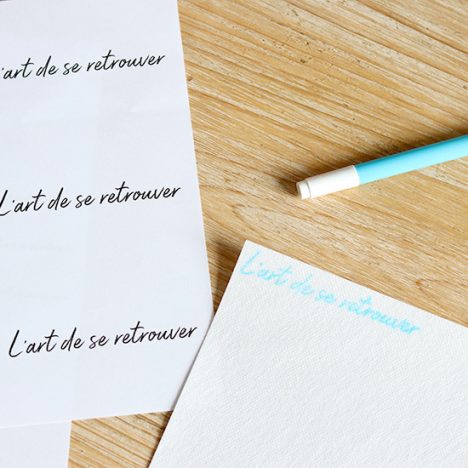 L'art de se retrouver
L'art de se retrouver
L'art de se retrouver
L'art de se retrouver